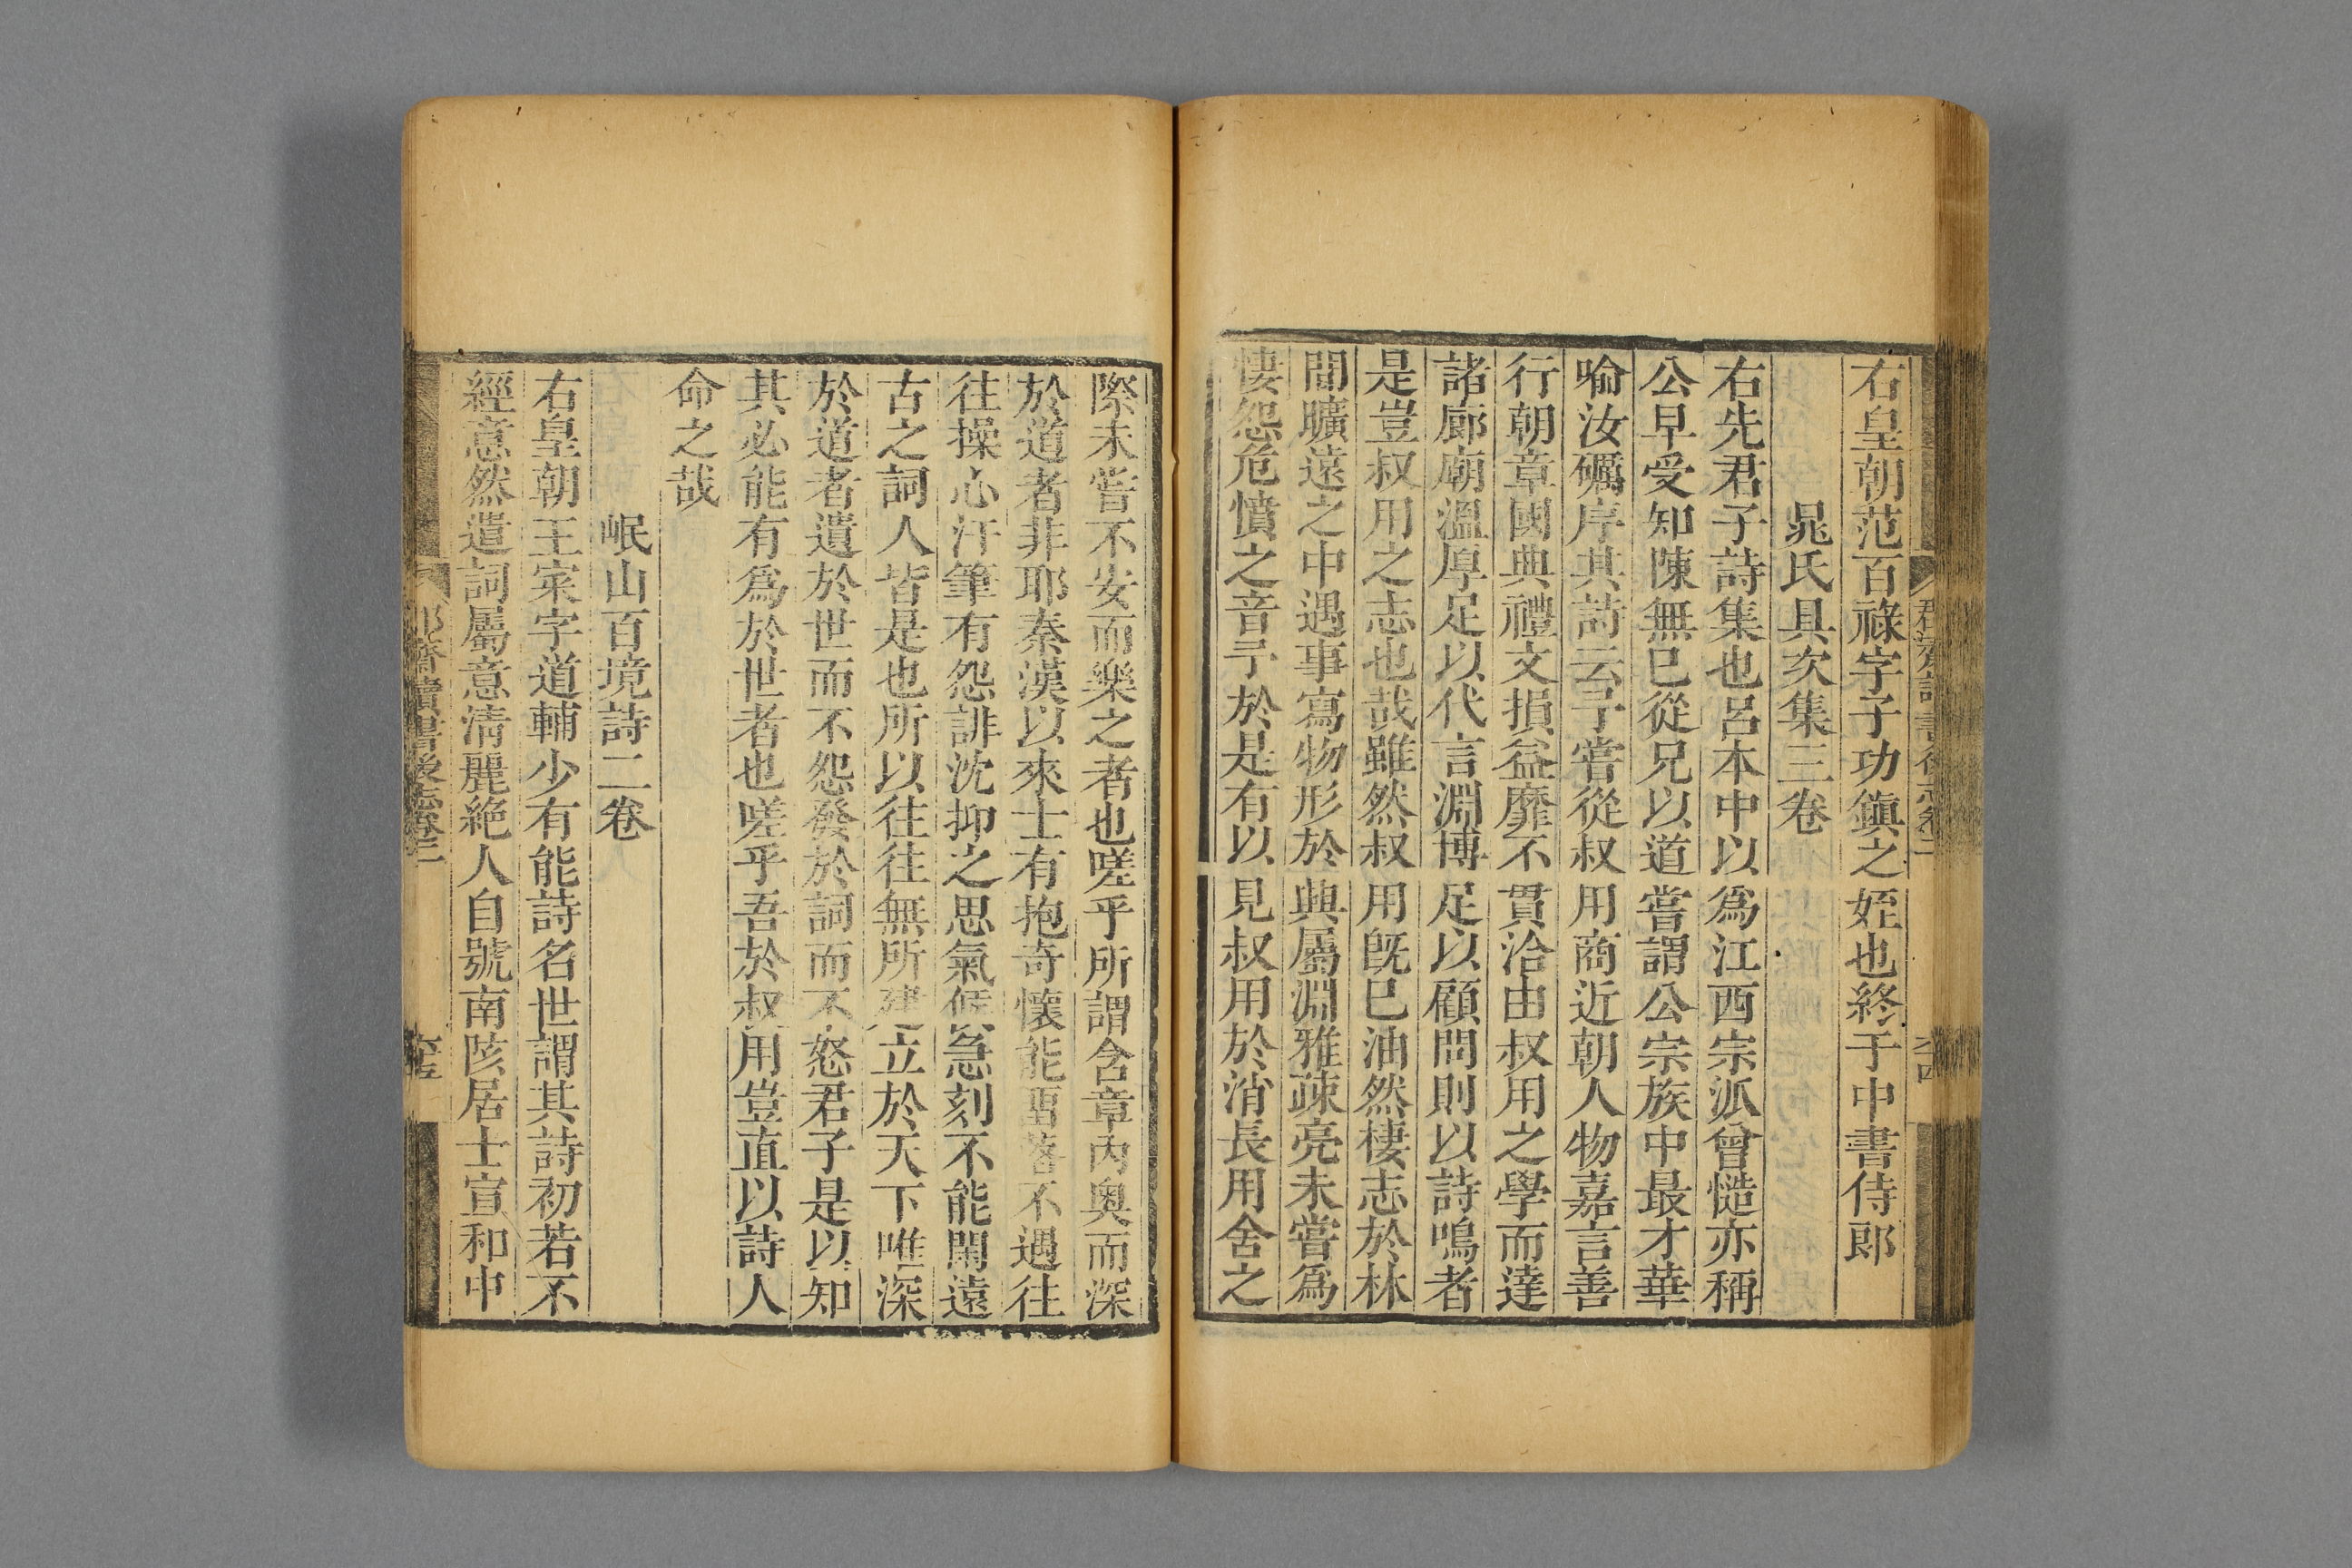 右皇朝范百祿字子功鎮之姪也終于中書侍郎
晁氏具茨集三卷
右先君子詩集也呂本中以為江西宗派曾慥亦稱
公早受知陳無已從兄以道嘗謂公宗族中最才華
喻汝礪序其詩云予嘗從叔用商近朝人物嘉言善
行朝章國典禮文損益靡不貫洽由叔用之學而達
諸廊廟溫厚足以代言淵博足以顧問則以詩鳴者
是豈叔用之志也哉雖然叔用旣已油然棲志於林
間曠遠之中遇事寫物形於興屬淵雅疎亮未嘗為
悽怨危憤之音予於是有以見叔用於消長用舍之
際未嘗不安而樂之者也嗟乎所謂含章內奧而深
於道者非耶秦漢以來士有抱奇懷能留落不遇往
往操心汗筆有怨誹沈抑之思氣候急刻不能閑遠
古之詞人皆是也所以往往無所建立於天下唯深
於道者遺於世而不怨發於詞而不怒君子是以知
其必能有為於世者也嗟乎吾於叔用豈直以詩人
命之哉
岷山百境詩二卷
右皇朝王寀字道輔少有能詩名世謂其詩初若不
經意然遣詞屬意清麗絕人自號南陔居士宣和中
讀書後志卷二